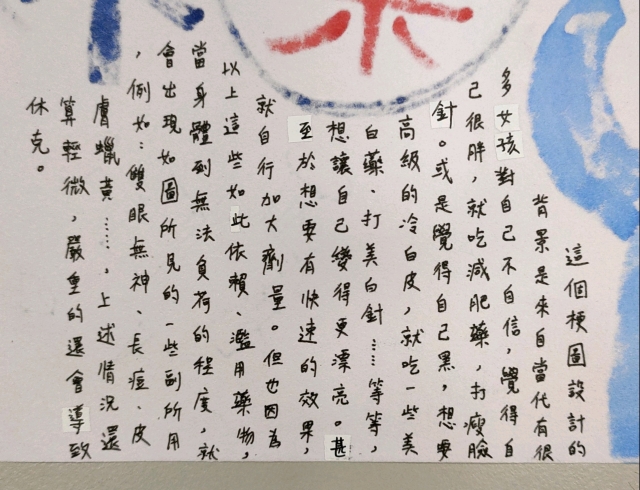 這個梗圖設計的
背景是來自當代有很
多女孩對自己不自信，覺得自
己很胖，就吃減肥藥，打瘦臉
針。或是覺得自己黑，想要
高級的冷白皮，就吃一些美
白藥、打美白針……等等，
想讓自己變得更漂亮。甚
至於想要有快速的效果，
就自行加大劑量。但也因為
以上這些如此依賴、濫用藥物，
當身體到無法負荷的程度，就
會出現如圖所見的一些副所用
，例如：雙眼無神、長痘、皮
膚蠟黃……，上述情況還
算輕微，嚴重的還會導致
休克。